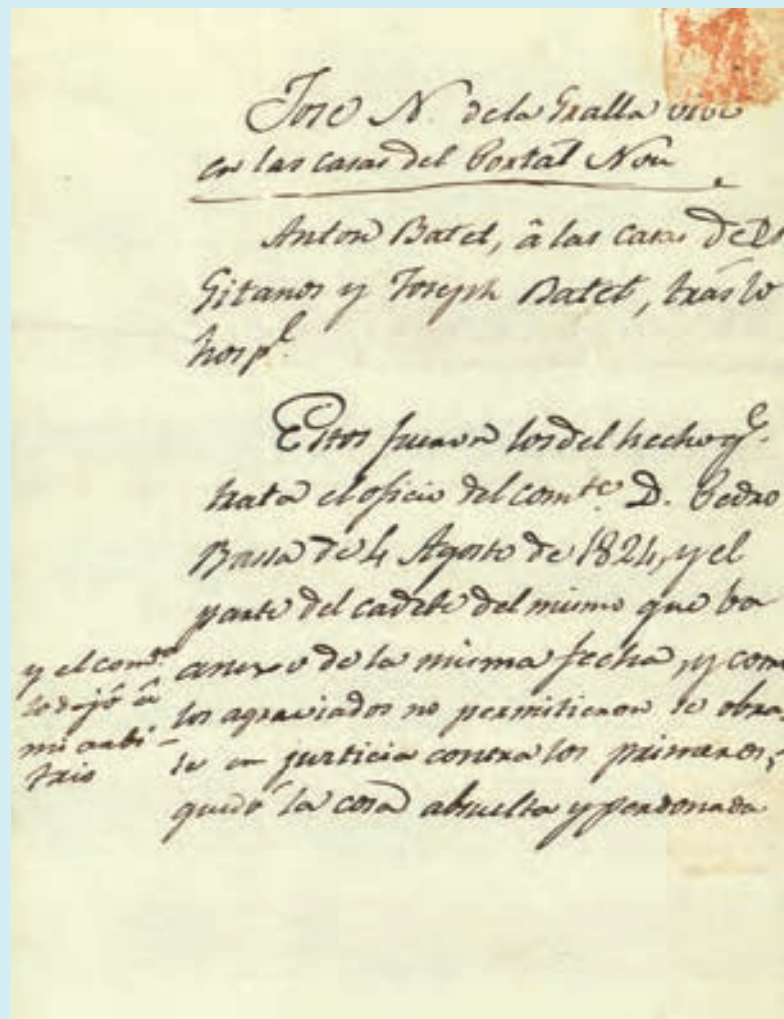 Jose N. de la Gralla vive
en las casas del Portal Nou
Anton Batet, â las casas de
Gitanos y Joseph Batet, trás lo
hospl.
Estos fueron los del hecho qe.
trata el oficio del comte. D. Pedro
Bassa de 4 Agosto de 1824, y el
parte del cadete del mismo que va
anexo de la misma fecha, y como
los agraviados no permitieron se obra
se en justicia contra los primeros,
quedó la cosa absuelta y perdonada
y el comte.
lo dejó â
mi arbi-
trio